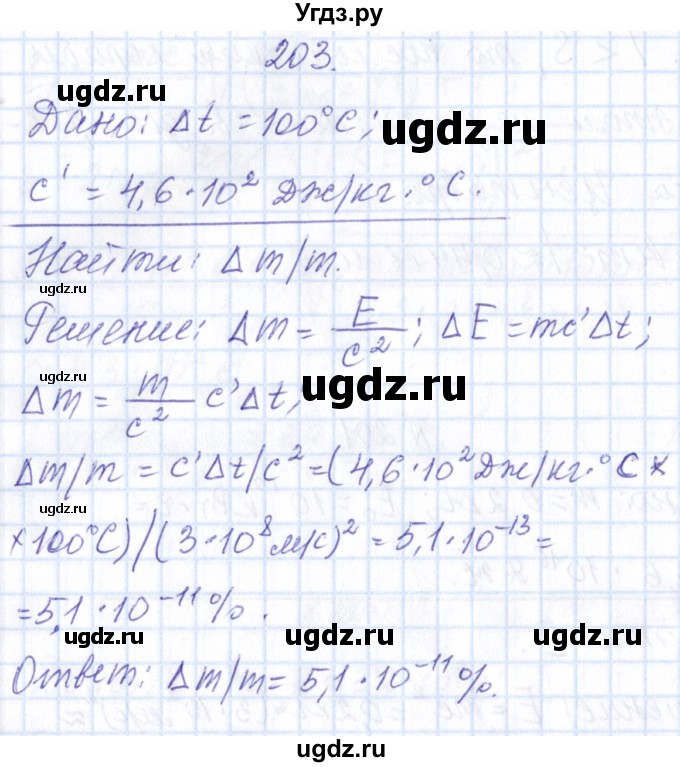 Угдз.ру
203.
ugdz.ru
Дано: Δt = 100°C;
ugdz.ru
c' = 4,6·10² Дж/кг·°C.
Найти: Δm/m.
ugdz.ru
Решение: Δm = E/c²; ΔE = mc'Δt;
ugdz.ru
ugdz.ru
Δm = m/c² c'Δt;
Δm/m = c'Δt/c² = (4,6·10² Дж/кг·°C ×
ugdz.ru
ugdz.ru
× 100°C)/(3·10⁸ м/с)² = 5,1·10⁻¹³ =
= 5,1·10⁻¹¹ %.
ugdz.ru
ugdz.ru
Ответ: Δm/m = 5,1·10⁻¹¹ %.
ugdz.ru